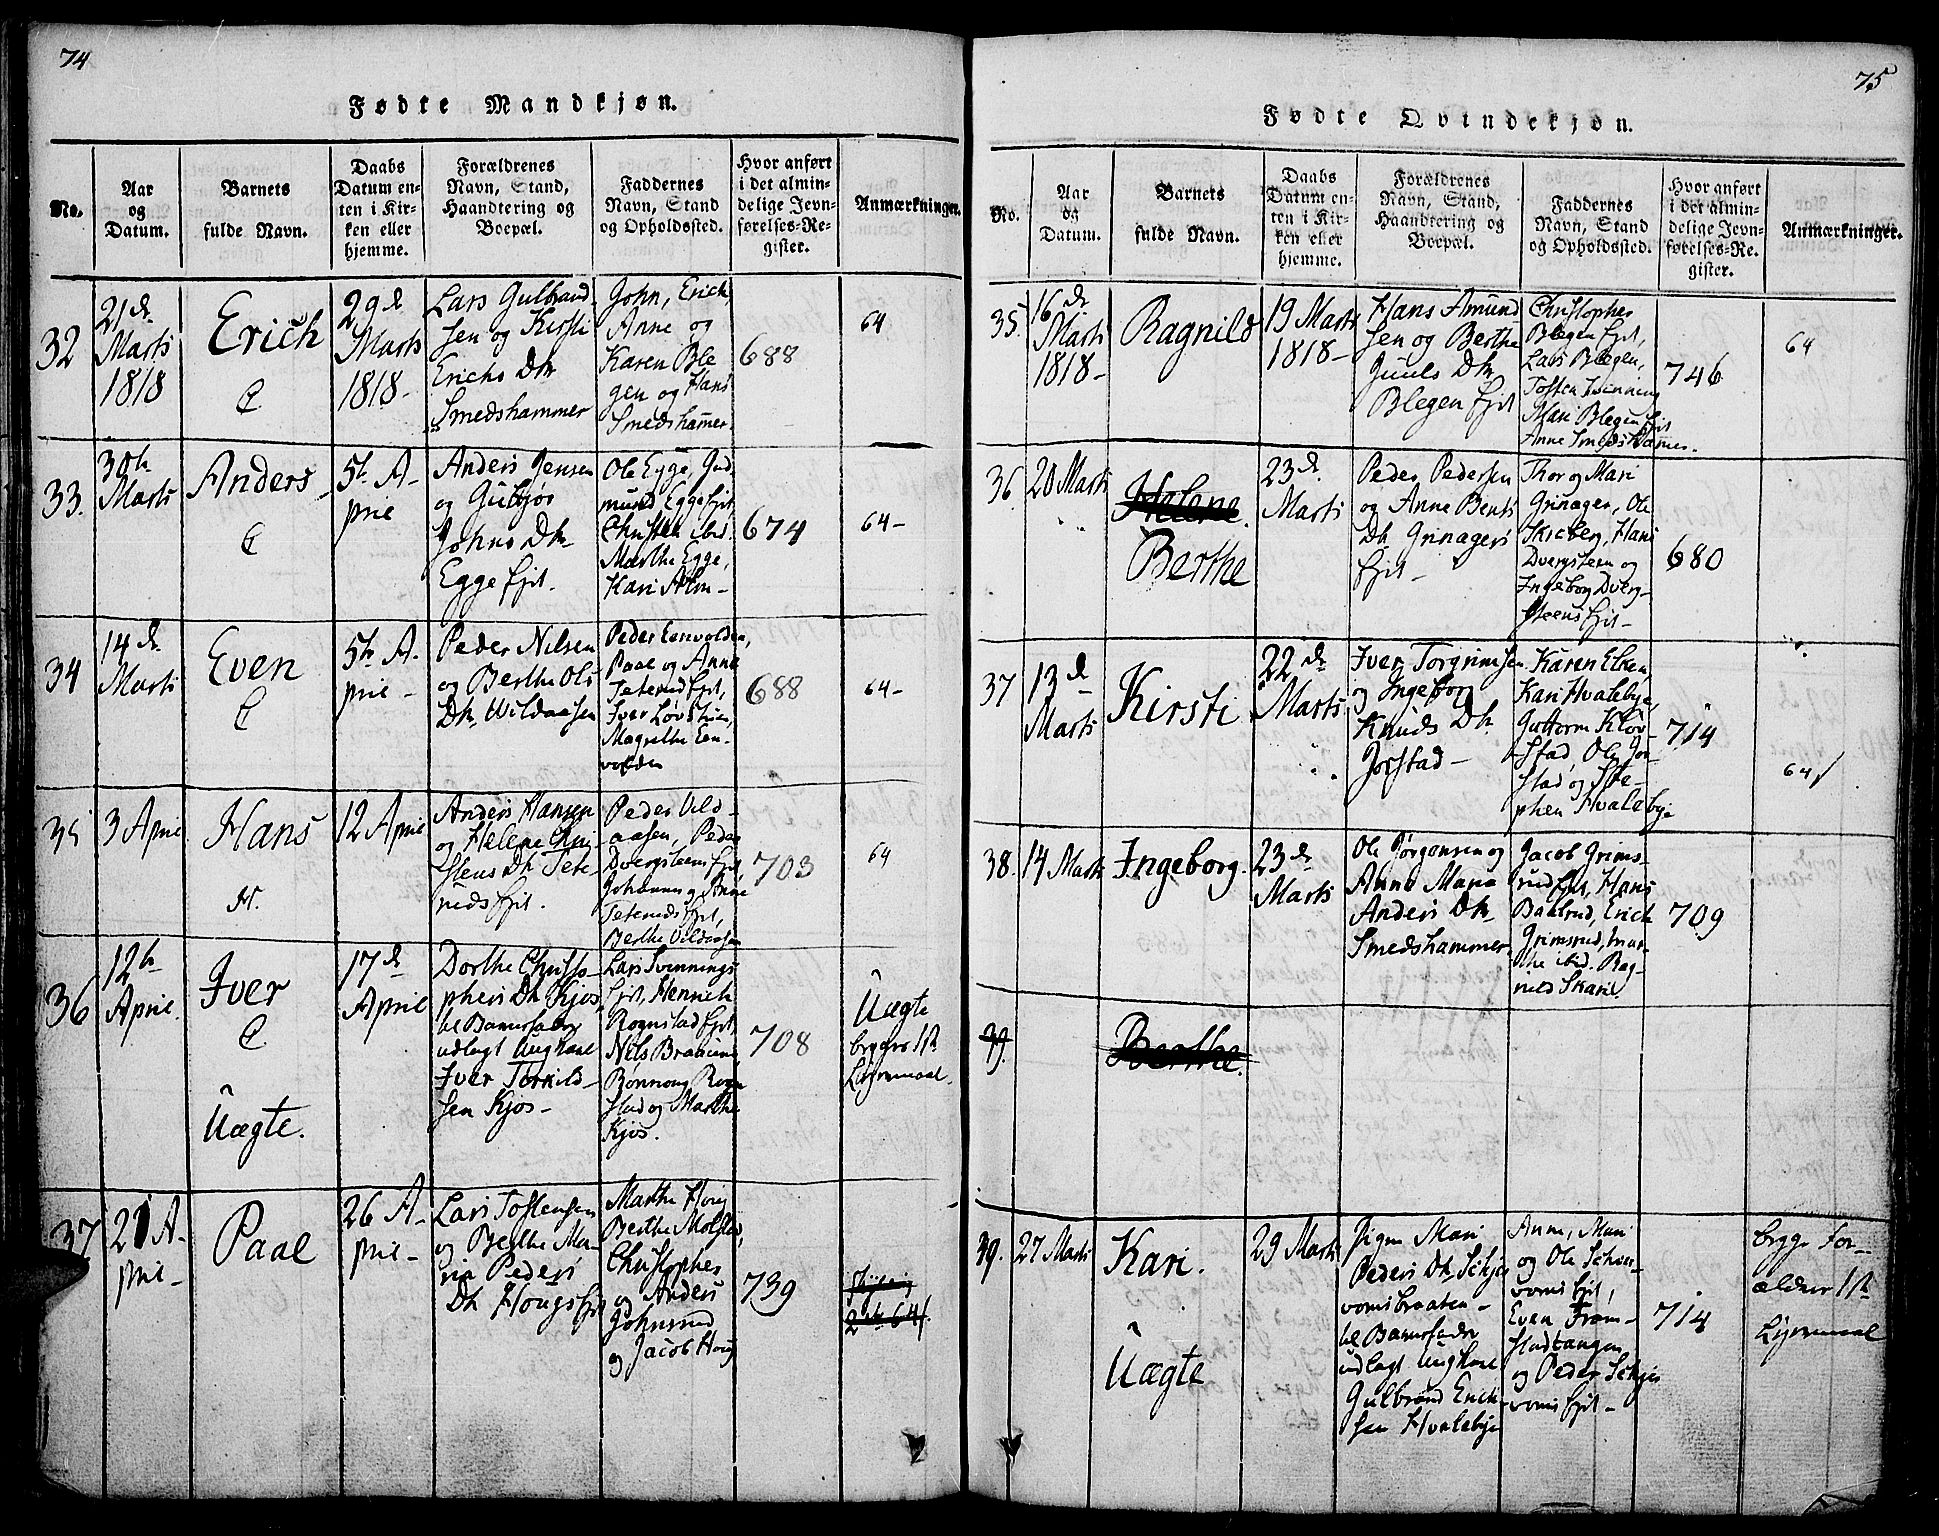 74
Fødte Mandkjøn.
No.
Aar
og
Datum.
Barnets
fulde Navn.
Daabs
Datum en-
ten i Kir-
ken eller
hjemme.
Forældrenes
Navn, Stand,
Haandtering og
Boepæl.
Faddernes
Navn, Stand
og Opholdssted.
Hvor anført
i det almin-
delige Jevn-
førelses-Re-
gister.
Anmærkninger.
32
21de
Marts
1818
Erich
C
29d
Marts
1818-
Lars Gulbrand-
sen og Kirsti
Erichs Dtr
Smedshammer
John, Erich,
Anne og
Karen Ble
gen og Hans
Smedshamer.
688
64
33.
30th
Marts
Anders
C
5th A-
pril
Anders Jensen
og Gubjør
Johns Dtr
Egge Ejet.
Ole Egge, Gud
mund Egge Ejet
Christen ibid.
Marthe Egge,
Kari Alm-
674
64-
34
14de
Marts
Even
C
5th A-
pril-
Peder Nilsen
og Berthe Ols
Dtr, Wildaasen
Peder Eenvolden,
Paal og Anne
Teterud Ejet,
Iver Løvstuen,
Magrethe Een-
volden
688
64-
35
3 April
Hans
H.
12 April
Anders Hansen
og Helene Chri-
stens Dtr Tete-
ruds Ejet.
Peder Vild-
aasen, Peder
Dvergsteens Ejet
Johannes Anne
Teteruds Ejet,
Berthe Vildaasen
703
64
36
12th
April.
Iver
C
Uægte.
17d
April
Dorthe Christo-
phers Dtr Kjos,
til Barnefader
udlagt Ungkarl
Iver Torkild-
sen Kjos-
Lars Svennings
Ejet, Henrich
Rognstad Ejet,
Nils
Rønnoug Rogn
stad og Marthe
Kjos.
708
Uægte
begges 1ste
Leiermaal.
37
21 A-
pril-
Paal
26 A-
pril-
Lars Tostensen
og Berthe Ma-
ria Peders
Dtr Hougs Ejet
Marthe Houg
Berthe Molstad,
Christopher
og Anders
Johnsrud
og Jacob Houg
739
75
Fødte Qvindekjøn.
No.
Aar
og
Datum.
Barnets
fulde Navn.
Daabs
Datum en-
ten i Kir-
ken eller
hjemme.
Forældrenes
Navn, Stand,
Haandtering og
Boepæl.
Faddernes
Navn, Stand
og Opholdssted.
Hvor anført
i det almin-
delige Jevn-
førelses-Re-
gister.
Anmærkninger.
35
16de
Marts
1818-
Ragnild
19 Marts
1818-
Hans Amund
sen og Berthe
Juuls Dtr
Blegen Ejet
Christopher
Blegen Ejet,
Lars Blegen,
Tosten
Mari Blegen Ejet
Anne Smedshamer.
746
64
36
20 Marts
Helene.
Berthe
23de
Marts
Peder Pedersen
og Anne Bents
Dtr Grinagers
Ejet-
Thor og Mari
Grinager, Ole
Hans
Dvergsteen og
Ingeborg Dverg-
steens Ejet-
680
37
13d
Marts
Kirsti
22de
Marts
Iver Torgrimsen
og Ingeborg
Knuds Dtr
Jorstad-
Karen Elken
Kari Hvalebye,
Guttorm Klov-
stad, Ole Jor-
stad og Ste-
phen Hvalebye
714
64
38.
14 Marts
Ingeborg.
23de
Marts
Ole Jørgensen og
Anne Maria
Anders Dtr
Smedshammer
Jacob Grims-
rud Ejet, Hans
Bakkrud, Erich
Grimsrud, Mar-
the ibid. Rag-
nild Skarie
709
39.
Berthe.
39.
27 Marts
Kari.
Uægte
29 Marts
Pigen Mari
Peders Dtr Schjer
vomsbraaten-
til Barnefader
udlagt Ungkarl
Gulbrand Erich-
sen Hvalebye
Anne, Mari
og Ole Schjer-
voms Ejet,
Even Fram-
stadtangen
og Peder Schjer
voms Ejet-
714
begge For-
ældres 1ste
Leiermaal